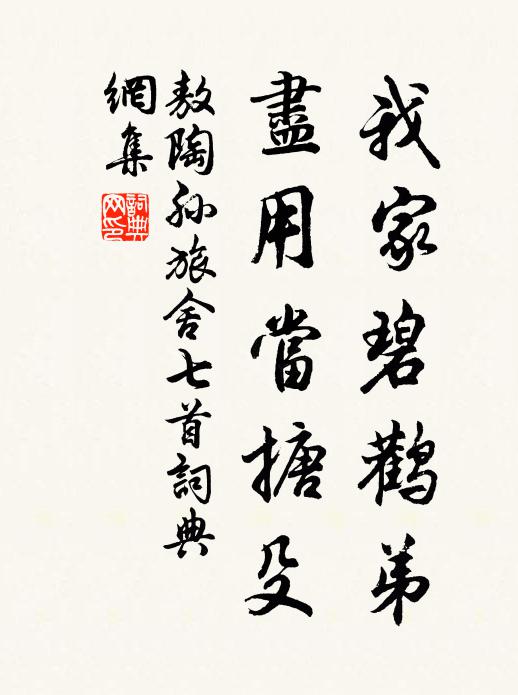 我家碧鸛弟
盡用當搪殳
敖陶孙旅舍七首詞典
網集
詞典
网印